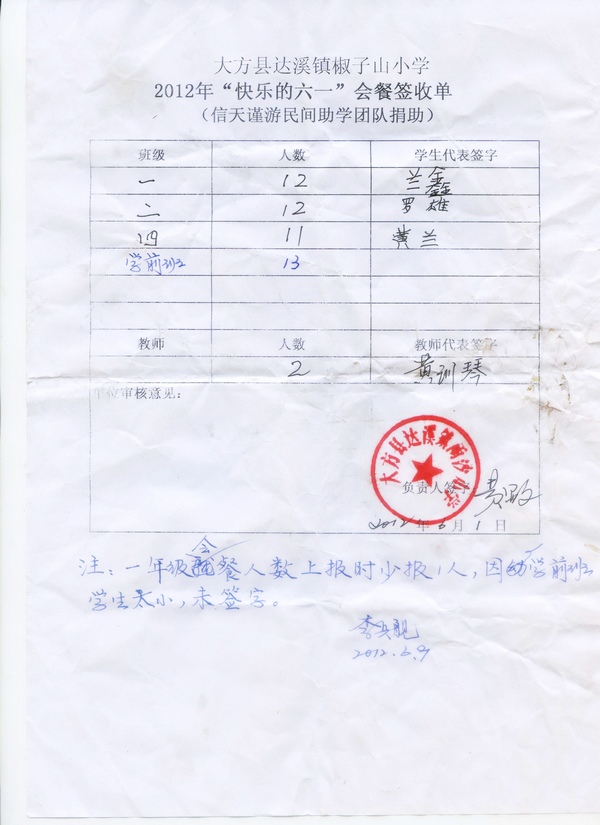 大方县达溪镇椒子山小学
2012年“快乐的六一”会餐签收单
（信天谨游民间助学团队捐助）
班级 人数 学生代表签字
一 12 兰鑫
二 12 罗雄
四 11 黄兰
学前班 13
教师 人数 教师代表签字
2 黄训琴
单位审核意见：
大方县达溪镇 小学
负责人签字
2012年6月1日
注：一年级会餐人数上报时少报1人，因学前班
学生太小，未签字。
2012.6.9